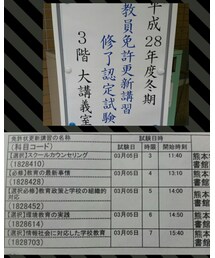 平成28年度冬期
教員免許更新講習
修了認定試験
3階 大講義室
免許状更新講習の名称
(科目コード)
試験日時
試験日 時限 開始時刻
【選択】スクールカウンセリング
(1828410)
03月05日 3 11:40
熊本
書館
【必修】教育の最新事情
(1828428)
03月05日 4 13:10
熊本
書館
【選択必修】教育政策と学校の組織的
対応
(1828452)
03月05日 5 14:00
熊本
書館
【選択】環境教育の実践
(1828614)
03月05日 6 14:50
熊本
書館
【選択】情報社会に対応した学校教育
(1828703)
03月05日 7 15:40
熊本
書館